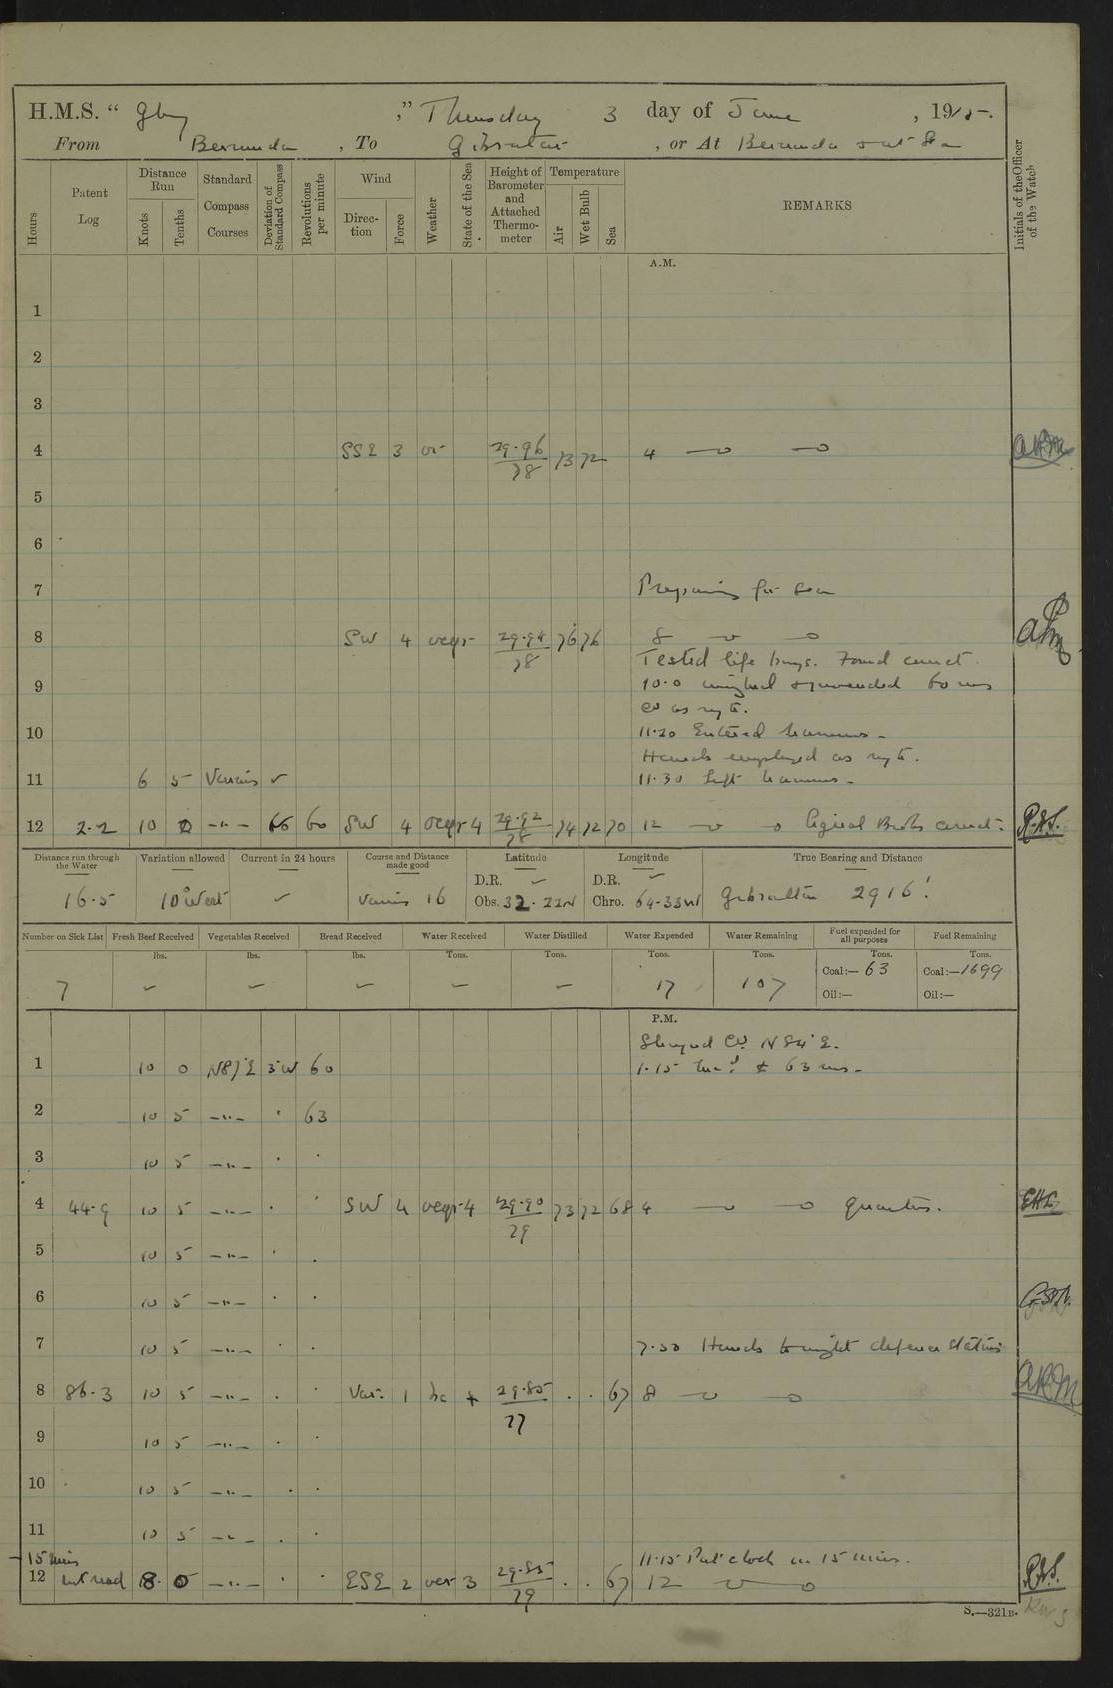 H.M.S. " Glory ," Thursday 3 day of June , 1915.
From Bermuda , To Gibraltar , or At Bermuda & at Sea
Hours
Patent Log
Distance Run
Knots
Tenths
Standard Compass Courses
Deviation of Standard Compass
Revolutions per minute
Wind
Direc- tion
Force
Weather
State of the Sea
Height of Barometer and Attached Thermo- meter
Temperature
Air
Wet Bulb
Sea
REMARKS
Initials of the Officer of the Watch
A.M.
1
2
3
4 SSE 3 or 29.96/78 73 72 4
5
6
7 Preparing for Sea
8 SW 4 ocqr 29.94/78 76 76 8
Tested life buoys. Found correct.
9 10.0 weighed & proceeded 60 revs
Co as reqte.
10 11.20 Entered Narrows -
Hands employed as reqte.
11 6 5 Various ✓ 11.30 Left Narrows -
12 2.2 10 0 -"- 60 SW 4 ocqr 4 29.92/78 74 72 70 12 correct. R.S.
Distance run through the Water
Variation allowed
Current in 24 hours
Course and Distance made good
Latitude
Longitude
True Bearing and Distance
16.5 10° West ✓ Various 16 D.R. ✓ D.R. ✓ Gibraltar 2916'
Obs. 32.22N Chro. 64.33W
Number on Sick List
Fresh Beef Received
Vegetables Received
Bread Received
Water Received
Water Distilled
Water Expended
Water Remaining
Fuel expended for all purposes
Fuel Remaining
lbs. lbs. lbs. Tons. Tons. Tons. Tons. Tons. Tons.
7 ✓ ✓ ✓ ✓ ✓ 17 107 Coal:— 63 Coal:—1699
Oil:— Oil:—
P.M.
Shaped Co. N84°E.
1 10 0 N87°E 3°W 60 1.15 Incd to 63 revs.
2 10 5 -"- ' 63
3 10 5 -"- ' '
4 44.9 10 5 -"- ' ' SW 4 ocqr 4 29.90/79 73 72 68 4 Quarters. EHL
5 10 5 -"- ' '
6 10 5 -"- ' '
7 10 5 -"- ' ' 7.30 Hands to night defence stations
8 86.3 10 5 -"- ' ' Var. 1 bc 29.85/77 . . 67 8 ARM
9 10 5 -"- ' '
10 10 5 -"- ' '
11 10 5 -"- ' '
-15 mins 11.15 Put clock on 15 mins.
12 not read 8 0 -"- ' ' ESE 2 ocr 3 29.85/79 . . 67 12 R.S.
S.—321B.